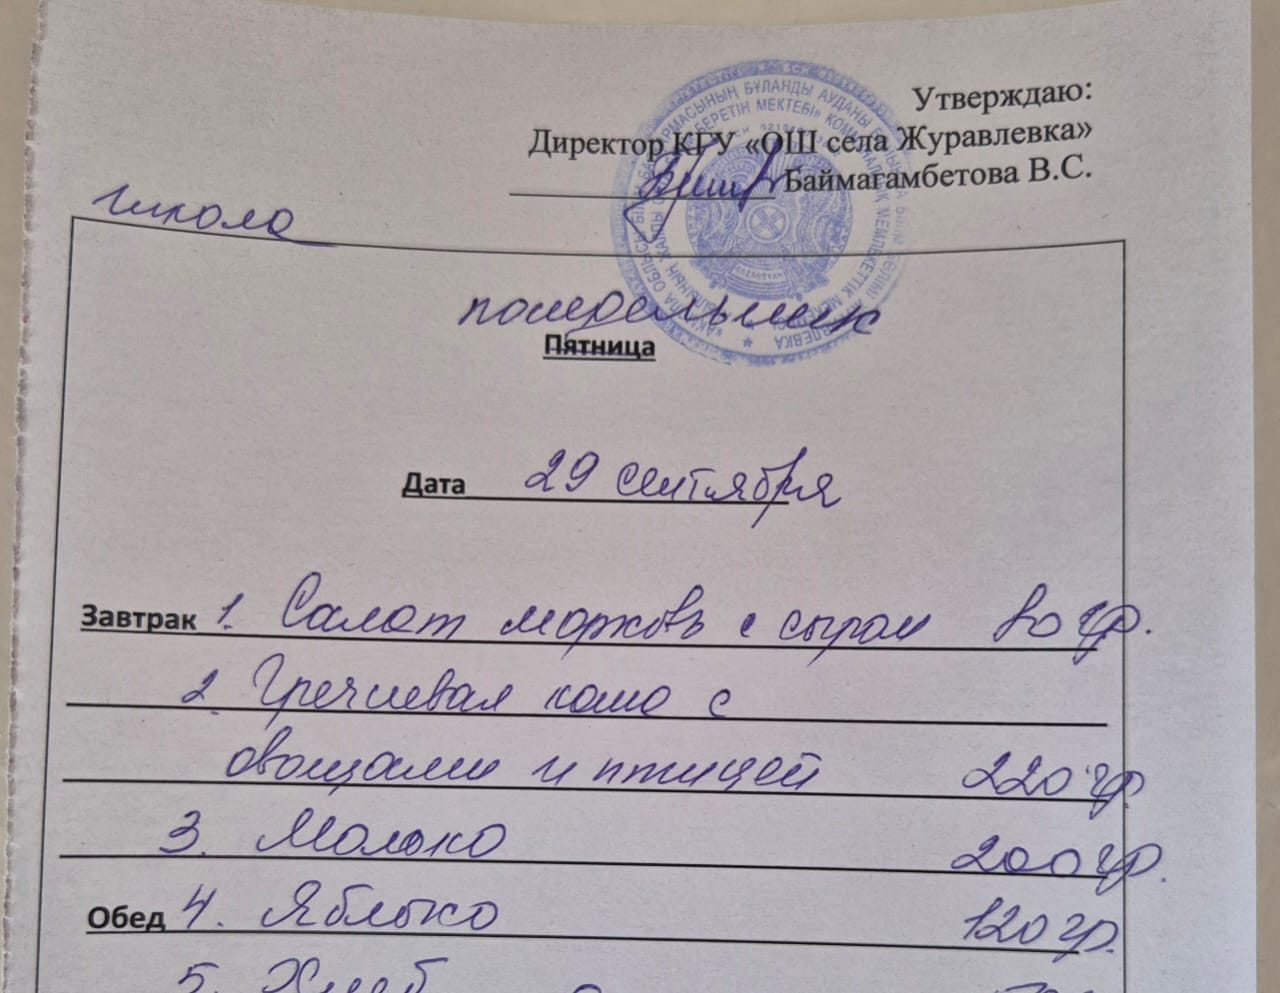 Утверждаю:
Директор КГУ «ОШ села Журавлевка»
Баймагамбетова В.С.
школа
понедельник
Пятница
Дата 29 сентября
Завтрак 1. Салат морковь с сыром 60 гр.
2. Гречневая каша с
овощами и птицей 220 гр.
3. Молоко 200 гр.
Обед 4. Яблоко 120 гр.
5. Хлеб